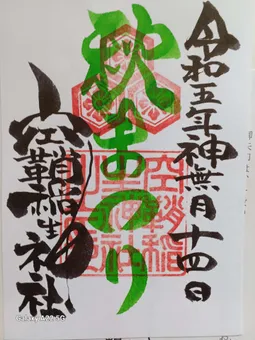 令和五年神無月十四日
秋まつり
空鞘稲生神社